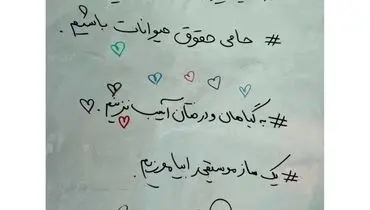 # حامی حقوق حیوانات باشیم .
# به گیاهان و درختان آسیب نزنیم .
# یک ساز موسیقی را بیاموزیم .